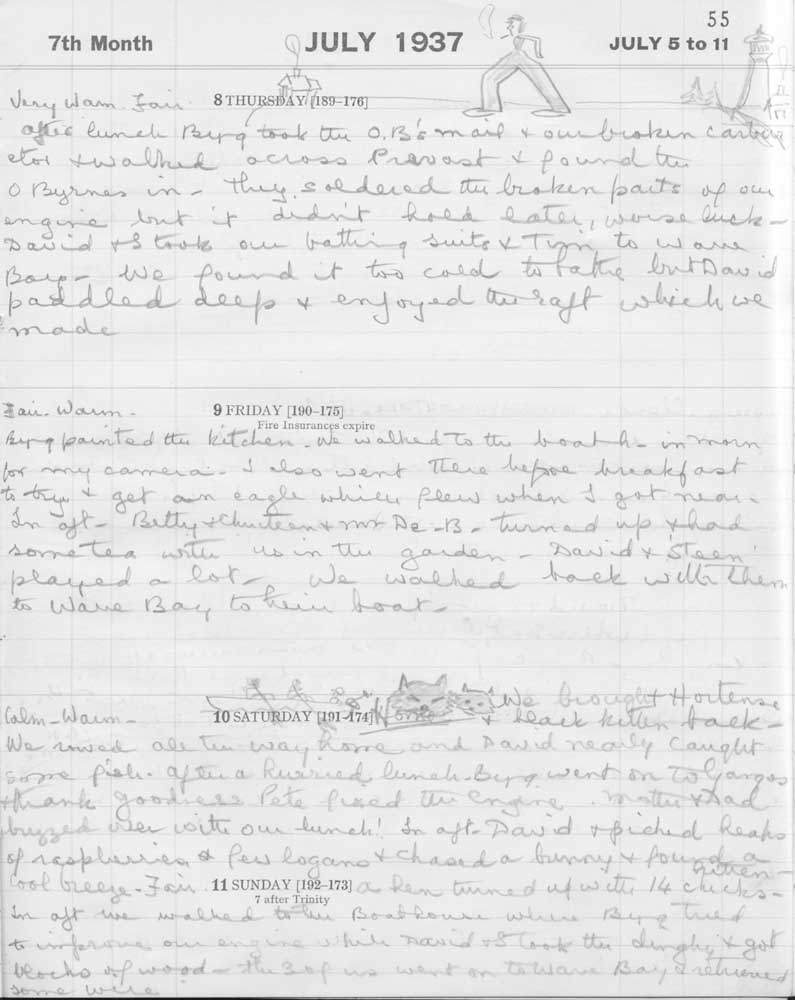 55
7th Month JULY 1937 JULY 5 to 11
Very Warm. Fair. 8 THURSDAY [189-176]
After lunch Byrg took the O.B's mail & our broken carbur
etor & walked across Prevost & found the
O Byrnes in - they soldered the broken parts of our
engine but it didn't hold later, worse luck -
David & I took our bathing suits & Tim to Wave
Bay - We found it too cold to bathe but David
paddled deep & enjoyed the raft which we
made
Fair. Warm. 9 FRIDAY [190-175]
Fire Insurances expire
Byrg painted the kitchen. We walked to the boath - in morn
for my camera. I also went there before breakfast
to try & get an eagle which flew when I got near.
In aft - Betty & & Mr De-B - turned up & had
some tea with us in the garden - David & 'Steen'
played a lot - We walked back with them
to Wave Bay to their boat -
We brought Hortense
Calm - Warm - 10 SATURDAY [191-174] & black kitten back -
We rowed all the way home and David nearly caught
some fish. After a hurried lunch Byrg went on to
& thank goodness Pete fixed the engine. Mother & Dad
buzzed over with our lunch! In aft - David & I picked heaps
of raspberries & few logans & chased a bunny & found a
kitten -
Cool breeze - Fair. 11 SUNDAY [192-173] a hen turned up with 14 chicks -
7 after Trinity
In aft we walked to the Boathouse where Byrg tried
to improve our engine while David & I took the dinghy & got
blocks of wood - the 3 of us went on to Wave Bay & retrieved
some wire